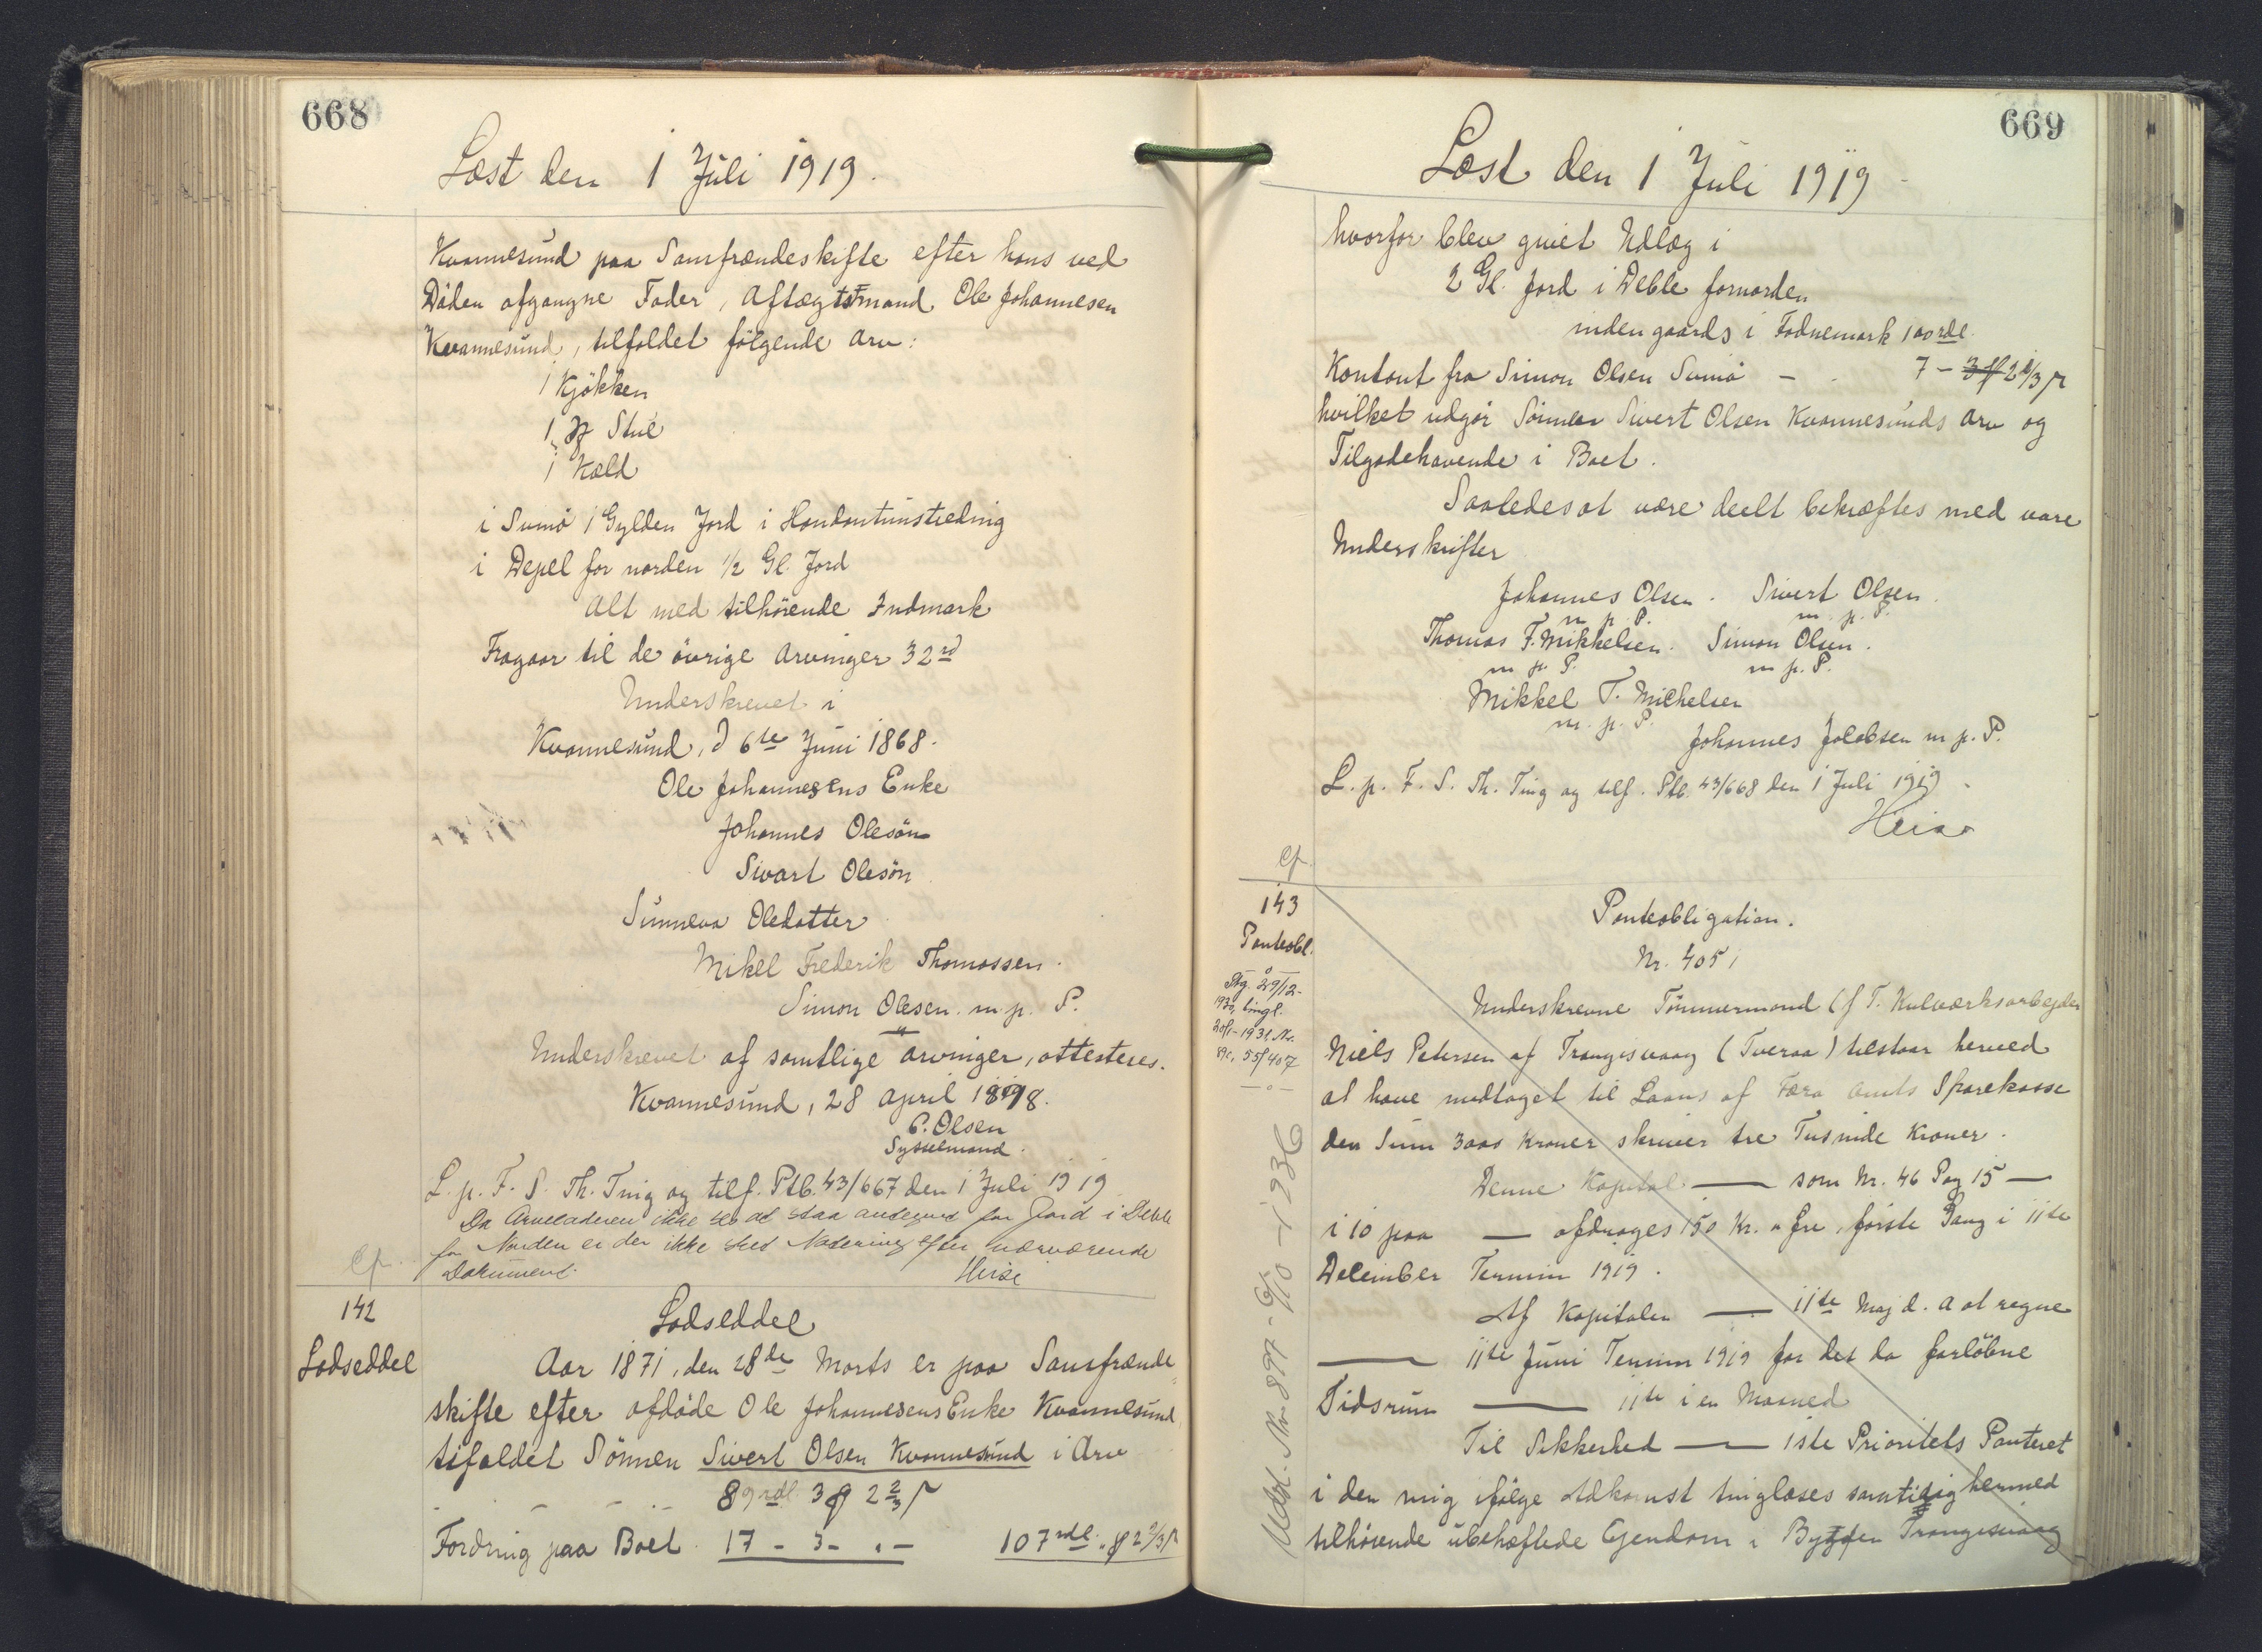 668
Læst den 1 Juli 1919.
Kvannesund paa Samfrændeskifte efter hans ved
Døden afgangne Fader, Aftægtsmand Ole Johannesen
Kvannesund, tilfaldet følgende Arv:
1 Kjökken
1 Stue
1 Kald
i Svinö 1 Gylden Jord i
i Depel for norden 1/2 Gl. Jord
Alt med tilhörende Indmark
Fragaar til de övrige Arvinger 32 rd
Underskrevet i
Kvannesund, d 6te Juni 1868.
Ole Johannesens Enke
Johannes Olesön
Sivart Olesön
Sunneva Oledatter
Mikel Frederik Thomassen.
Simon Olesen. m. p. P.
Underskrevet af samtlige Arvinger, attesteres.
Kvannesund, 28 April 1898.
P. Olsen
Sysselmand.
L. p. F. S. Th. Ting og tilf. Ptb. 43/667 den 1 Juli 1919
Da Arveladeren ikke ses at staa anteguet for Jord i Deble
for Norden er der ikke sket Notering efter nærværende
Dokument. Heise
Cf.
142
Lodseddel
Lodseddel
Aar 1871, den 28de Marts er paa Samfrænde-
skifte efter afdöde Ole Johannesens Enke Kvannesund
tifaldet Sönnen Sivert Olsen Kvannesund i Arv
89 rdl. 3 2 2/3
Fordring paa Boet 17 - 3 - " - 107 rdl. " 2 2/3
669
Læst den 1 Juli 1919
hvorfor blev givet Udlæg i
2 Gl. Jord i Deble fornorden
inden gaards i Fodnemark 100 rdl.
Kontant fra Simon Olsen Svinö - 7 -
hvilket udgör Sönnen Sivert Olsen Kvannesunds Arv og
Tilgodehavende i Boet.
Saaledes at være deelt bekræftes med vore
Underskrifter
Johannes Olsen. Sivert Olsen.
m. p. P. m. p. P.
Thomas F. Mikkelsen. Simon Olsen.
m. p. P. m. p. P.
Mikkel T. Michelsen
m. p. P.
Johannes Jakobsen m. p. P.
L. p. F. S. Th. Ting og tilf. Ptb. 43/668 den 1 Juli 1919
Heise
Cf.
143
Pantobl.
29/12-
1930, tingl.
1931, Nr.
55/407
-o-
Udsl. Nr. 897 - 6/10 - 1936
Panteobligation.
Nr. 4051
Underskrevne Tömmermand (f. T. Kulværksarbejder
Niels Petersen af Trangisvaag (Tveraa) tilstaar herved
at have modtaget til Laans af Færø Amts Sparekasse
den Sum 3000 Kroner skriver tre Tusinde Kroner.
Denne Kapital — som Nr. 46 Pag 15 —
i 10 paa — afdrages 150 Kr. förste Gang i 11te
December Termin 1919.
Af Kapitalen — 11te Maj d. A at regne
— 11te Juni Termin 1919 for det da forlöbne
Tidsrum — 11te i en Maaned
Til Sikkerhed — 1ste Prioritets Panteret
i den mig ifölge Adkomst tinglæses samtidig hermed
tilhörende ubehæftede Ejendom i Bygden Trangisvaag